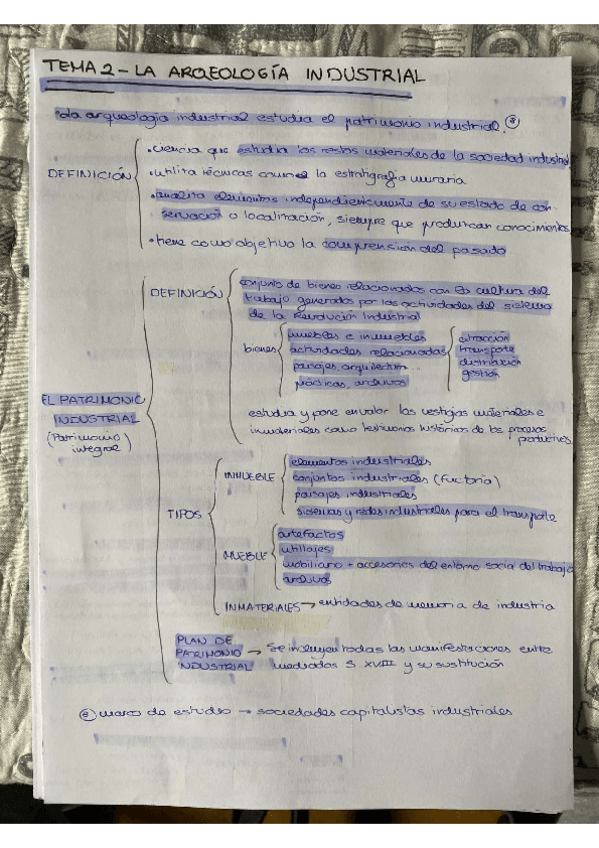 TEMA 2 - LA ARQEOLOGÍA INDUSTRIAL
La arqueología industrial estudia el patrimonio industrial.
DEFINICIÓN
• ciencia que estudia los restos materiales de la sociedad industrial
• utiliza técnicas como la estratigrafía muraria
• analiza elementos independientemente de su estado de con-
servación o localización, siempre que produzcan conocimientos
• tiene como objetivo la comprensión del pasado
EL PATRIMONIO
INDUSTRIAL
(Patrimonio
integral)
DEFINICIÓN
conjunto de bienes relacionados con la cultura del
trabajo generados por las actividades del sistema
de la Revolución Industrial
bienes
muebles e inmuebles
actividades relacionadas
paisajes, arquitectura...
prácticas, archivos
extracción
transporte
distribución
gestión
estudia y pone en valor los vestigios materiales e
inmateriales como testimonios históricos de los procesos
productivos
TIPOS
INMUEBLE
elementos industriales
conjuntos industriales (factoría)
paisajes industriales
sistemas y redes industriales para el transporte
MUEBLE
artefactos
utillajes
mobiliario + accesorios del entorno social del trabajo
archivos
INMATERIALES → entidades de memoria de industria
PLAN DE
PATRIMONIO
INDUSTRIAL
→ se incluyen todas las manifestaciones entre
mediados S. XVIII y su sustitución
marco de estudio → sociedades capitalistas industriales